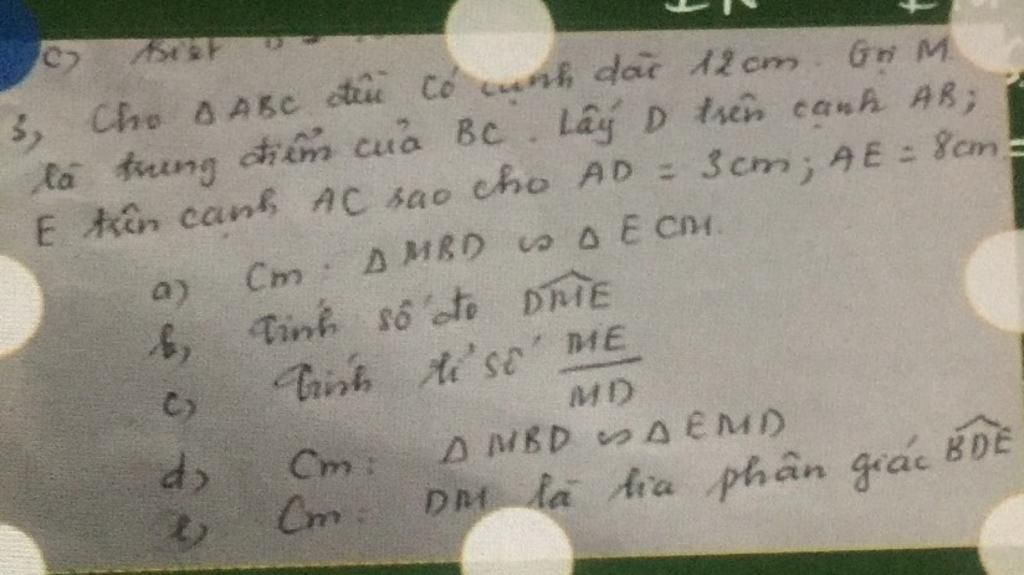 c) Biết
3, Cho Δ ABC đều có cạnh dài 12cm. Gọi M
là trung điểm của BC. Lấy D trên cạnh AB;
E trên cạnh AC sao cho AD = 3cm; AE = 8cm
a) Cm: Δ MBD ∽ Δ ECM.
b, Tính số đo \widehat{DME}
c) Tính tỉ số \frac{ME}{MD}
d) Cm: Δ MBD ∽ Δ EMD
e) Cm: DM là tia phân giác \widehat{BDE}